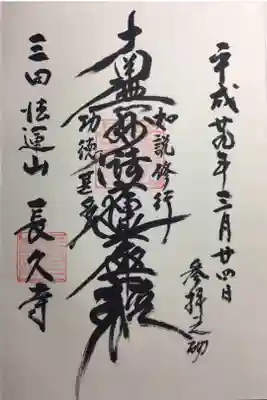 平成廿九年三月廿四日
参拝之砌
如説修行
南無妙法蓮華経
功徳甚多
三田法運山
長久寺